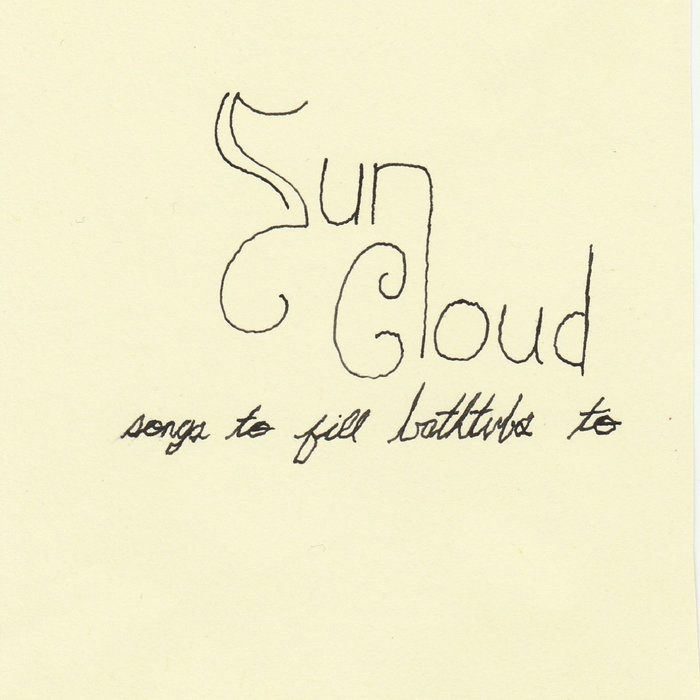 Sun
Cloud
songs to fill bathtubs to